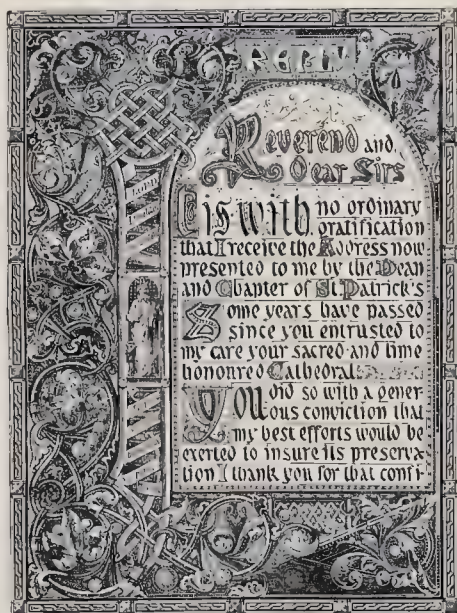 REPLY
Reverend and
Dear Sirs
It is with no ordinary
gratification
that I receive the Address now
presented to me by the Dean
and Chapter of St Patrick's
Some years have passed
since you entrusted to
my care your sacred and time
honoured Cathedral
You did so with a gener-
ous conviction that
my best efforts would be
exerted to insure its preserva-
tion I thank you for that confi-